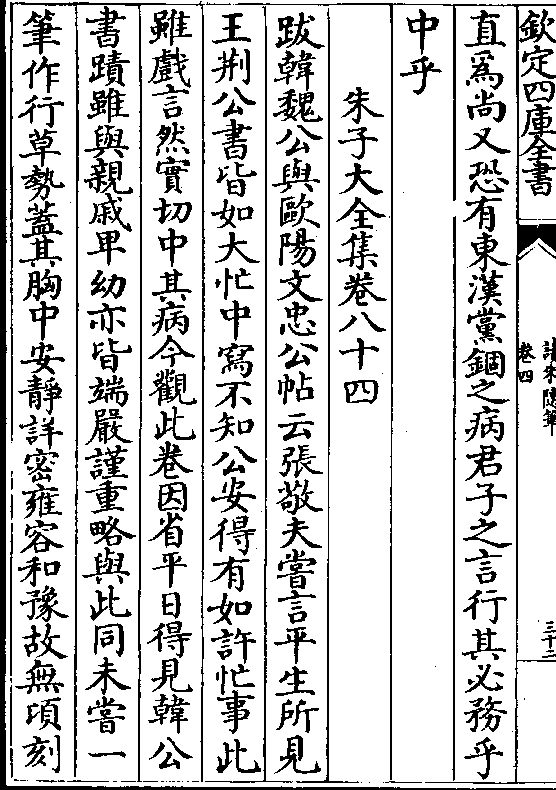 欽定四庫全書
讀朱隨筆
卷四
三十二
直為尚又恐有東漢黨錮之病君子之言行其必務乎
中乎
朱子大全集卷八十四
跋韓魏公與歐陽文忠公帖云張敬夫嘗言平生所見
王荆公書皆如大忙中寫不知公安得有如許忙事此
雖戲言然實切中其病今觀此卷因省平日得見韓公
書蹟雖與親戚卑幼亦皆端嚴謹重略與此同未嘗一
筆作行草勢蓋其胸中安靜詳密雍容和豫故無頃刻